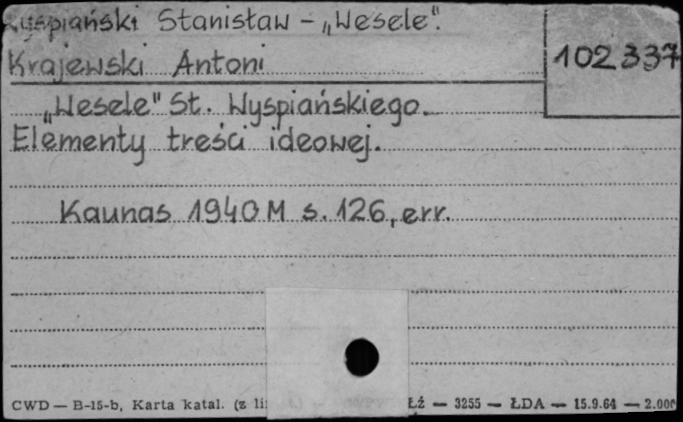 Wyspiański Stanisław - „Wesele".
Krajewski Antoni
102 337
„Wesele" St. Wyspiańskiego.
Elementy treści ideowej.
Kaunas 1940 M s. 126, err.
CWD — B-15-b, Karta katal. (z li
ŁŹ — 3255 — ŁDA — 15.9.64 — 2.000